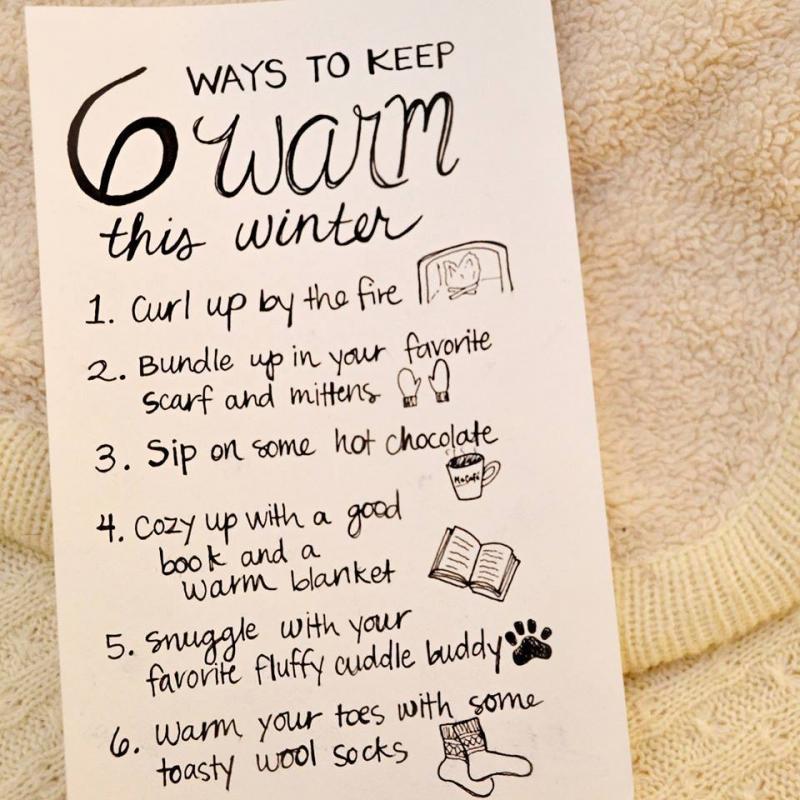 6 WAYS TO KEEP
warm
this winter
1. Curl up by the fire
2. Bundle up in your favorite
scarf and mittens
3. Sip on some hot chocolate
McCafé
4. Cozy up with a good
book and a
warm blanket
5. Snuggle with your
favorite fluffy cuddle buddy
6. Warm your toes with some
toasty wool socks